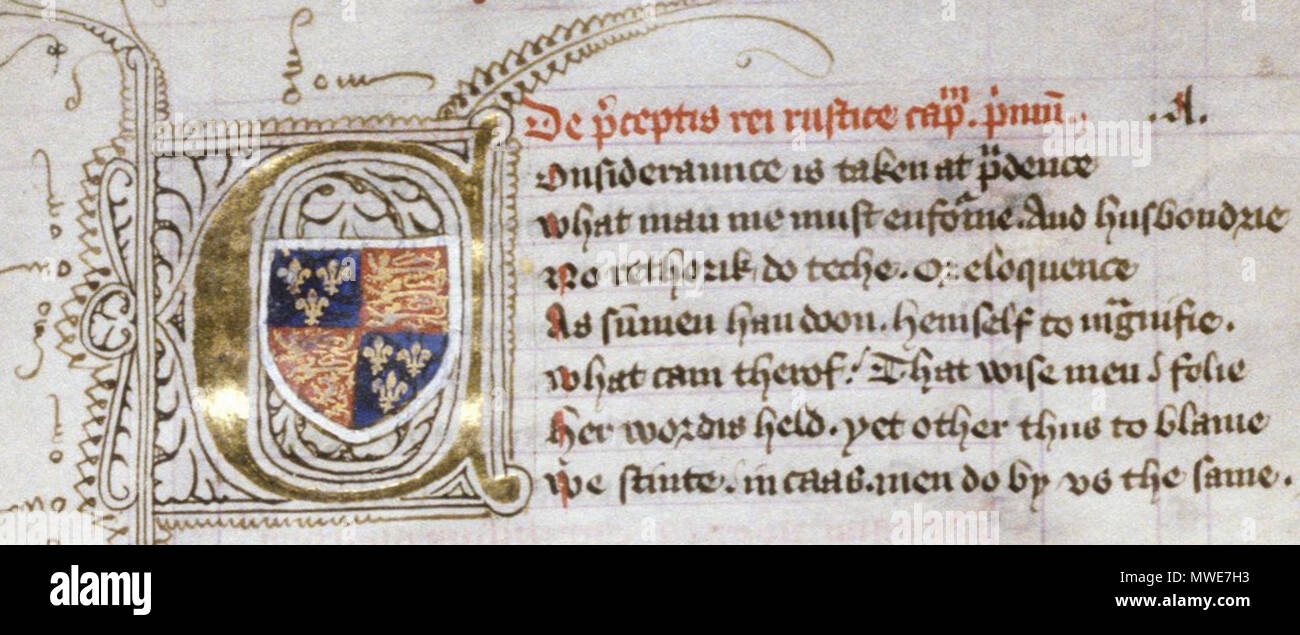 De p̉ceptis rei rustice cap̅ᵐ. p̉mū. .A.
Consideraunce is taken at p̉dence
What man me must enforme. And husbondrie
No rethorik do teche. Or eloquence
As sūmen han doon. hemself to mᵃgnifie.
What cam therof? That wise men folie
Her wordis held. yet other thus to blame
We stinte. in caas. men do by vs the same.
alamy
Image ID: MWE7H3
www.alamy.com